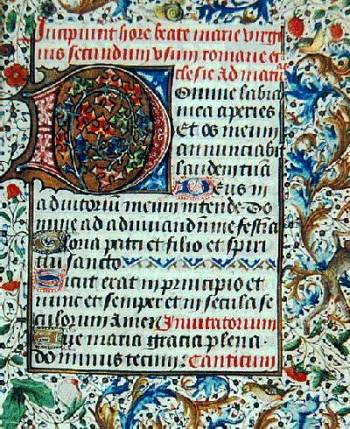 Incipiunt hore beate marie virgi
nis secundum usum romane ec
clesie Ad matuts
Domine labia
mea aperies
Et os meum
annunciabit
laudem tuam
Deus in
adiutorium meum intende Do
mine ad adiuvandum me festia
Gloria patri et filio et spiri
tui sancto
Sicut erat in principio et
nunc et semper et in secula se
culorum Amen Invitatorium
Ave maria gracia plena
dominus tecum Canticum